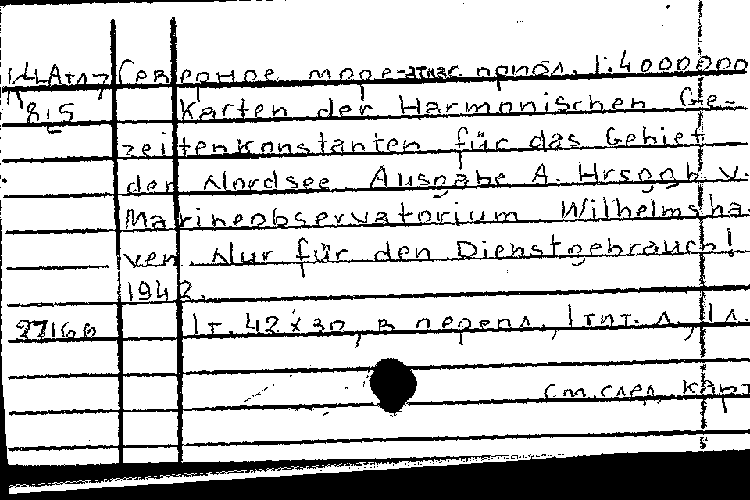 Северное море-атлас прпол. 1:4000000
8:5 Karten der Harmonischen Ge-
zeitenkonstanten für das Gebiet
der Nordsee Ausgabe A. Hrsggb. v.
Marineobservatorium Wilhelmsha-
ven. Nur für den Dienstgebrauch!
1942.
1т. 42x30, в перепл., 1 тит. л., 1 л.
см. след. карт